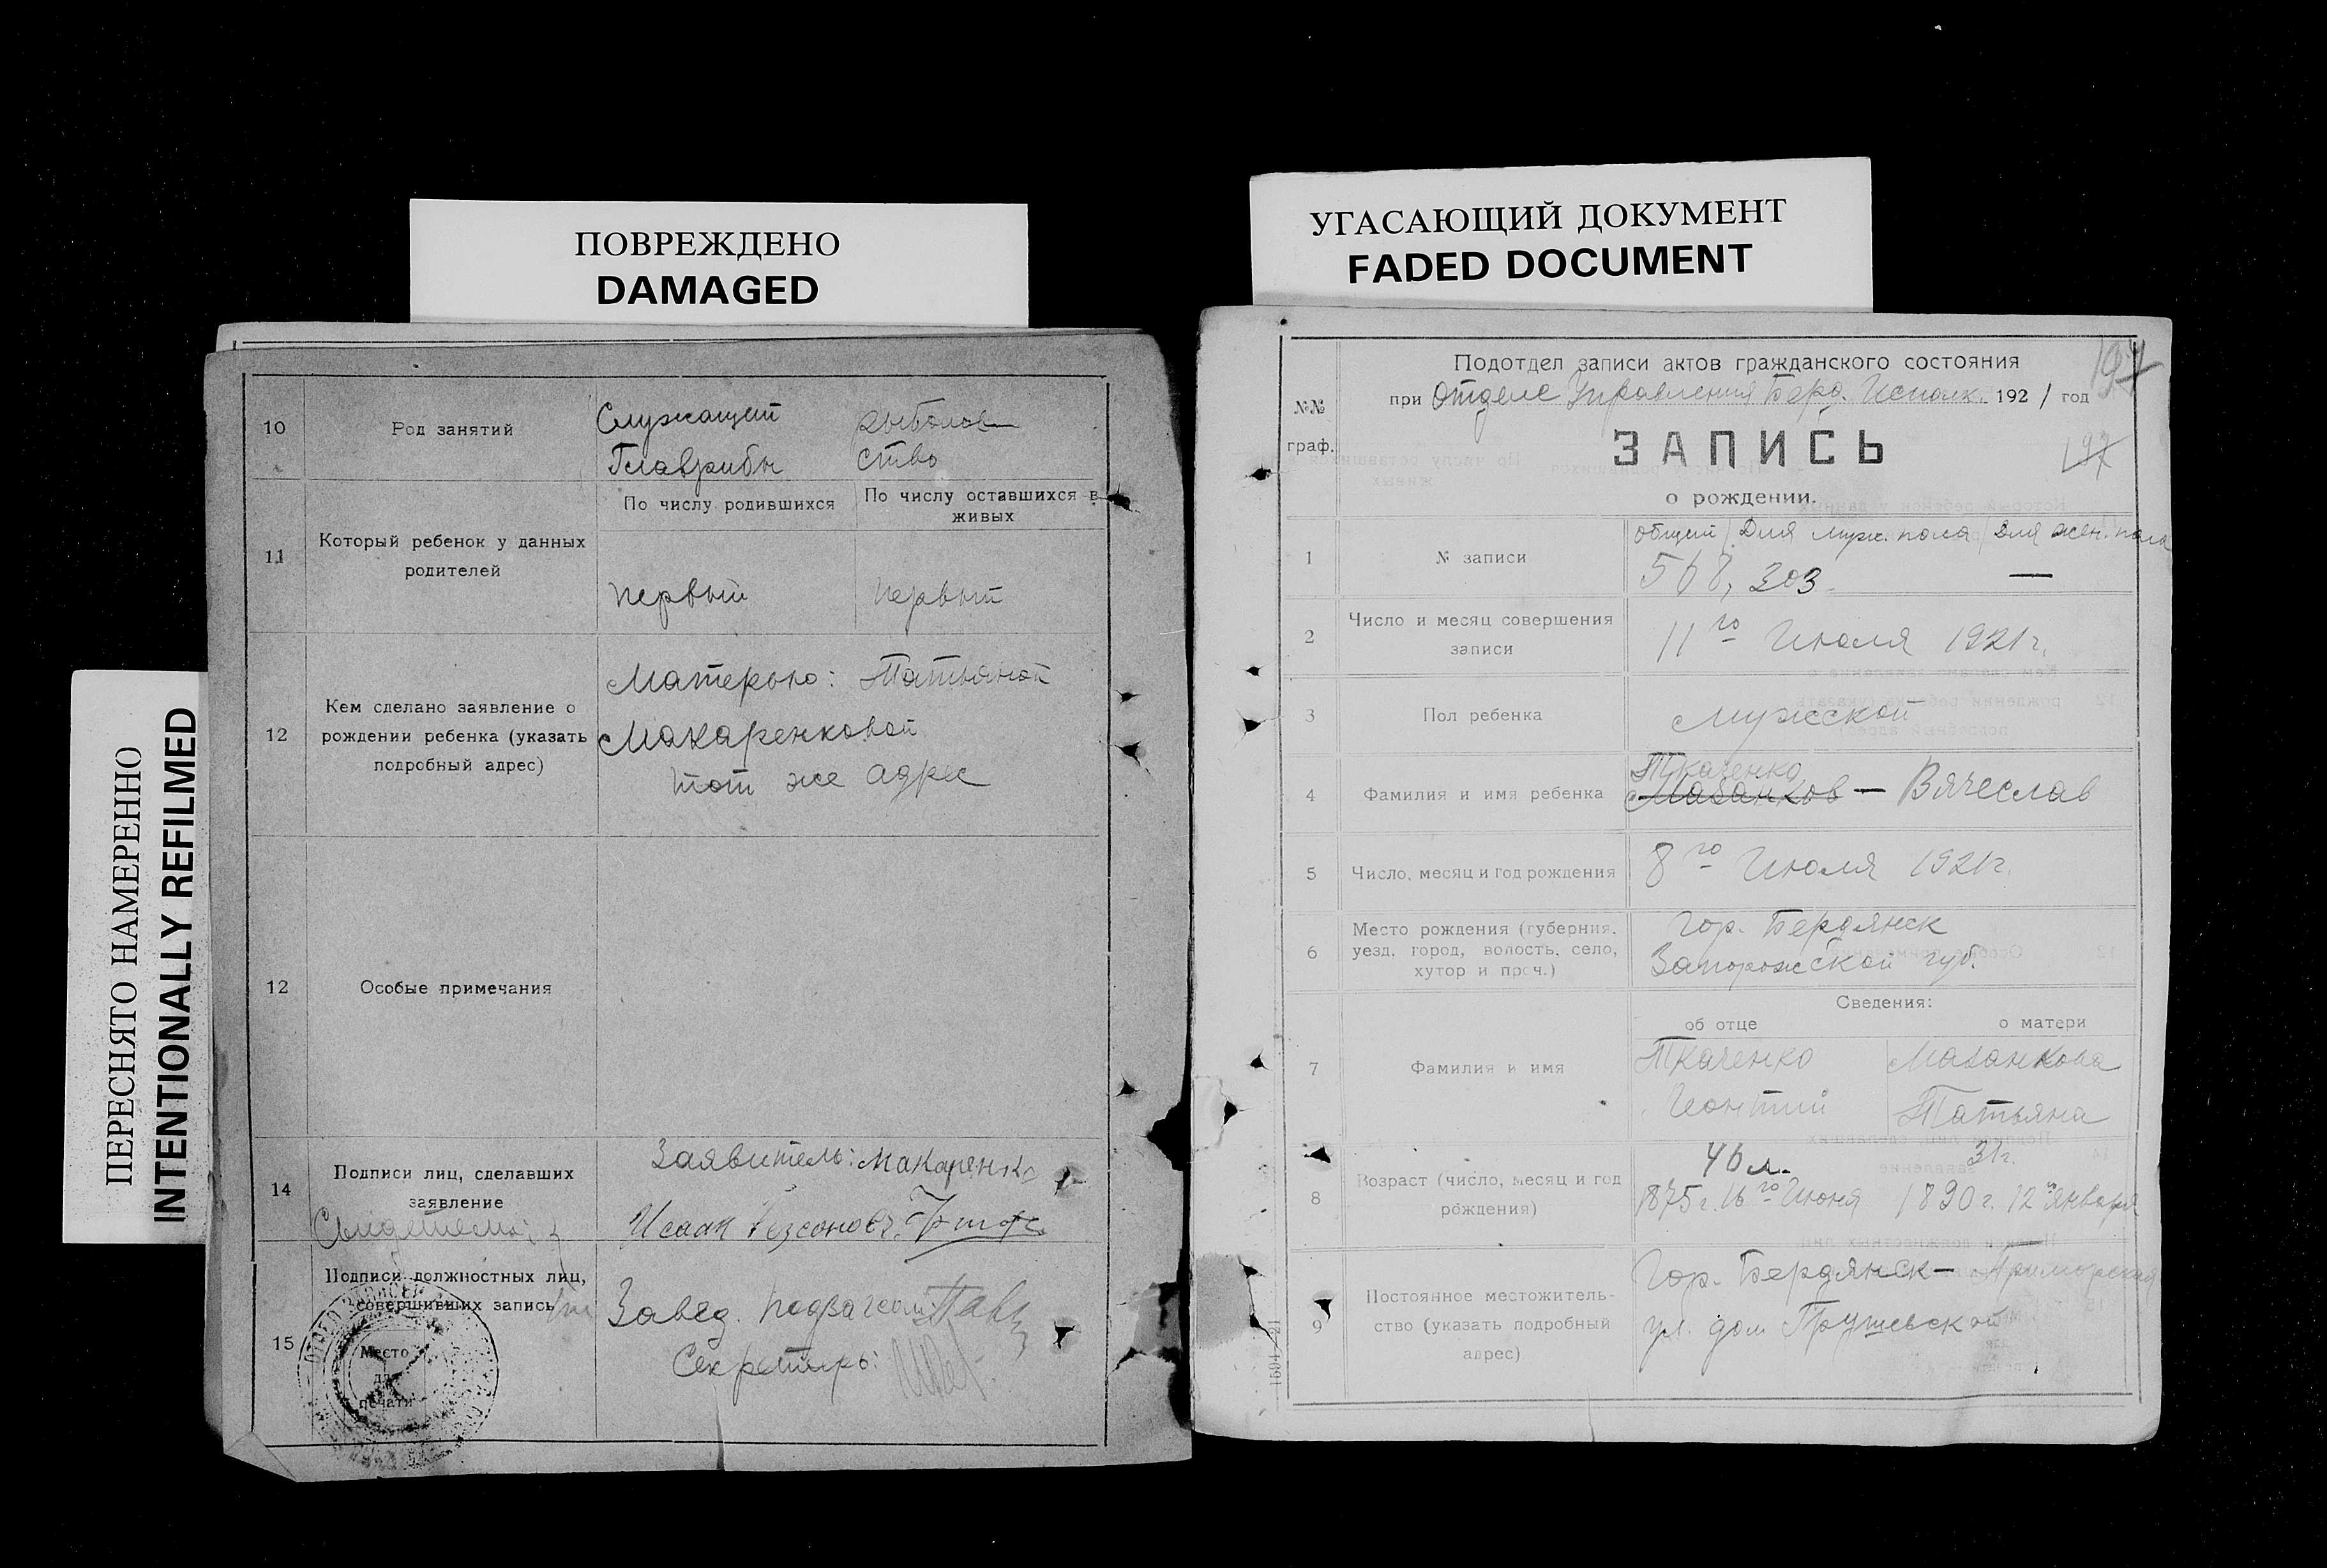 ПОВРЕЖДЕНО
DAMAGED
ПЕРЕСНЯТО НАМЕРЕННО
INTENTIONALLY REFILMED
10 Род занятий Служащий рыболов-
Главрыбы ство
11 Который ребенок у данных родителей
По числу родившихся По числу оставшихся в живых
первый первый
12 Кем сделано заявление о
рождении ребенка (указать
подробный адрес)
Матерью: Татьяной
Макаренковой
тот же адрес
12 Особые примечания
14 Подписи лиц, сделавших
заявление
Заявитель: Макаренко
Исаак
15 Подписи должностных лиц,
совершивших запись
Завед. подзагсом
Секретарь:
Место
для
печати
УГАСАЮЩИЙ ДОКУМЕНТ
FADED DOCUMENT
197
№№
граф.
Подотдел записи актов гражданского состояния
при Отделе Управления Берд. Исполк. 1921 год
ЗАПИСЬ
197
о рождении.
1 № записи
общий / Для муж. пола / Для жен. пола
568, 303. —
2 Число и месяц совершения
записи
11го Июля 1921 г.
3 Пол ребенка Мужской
4 Фамилия и имя ребенка
Ткаченко
Мазанков — Вячеслав
5 Число, месяц и год рождения 8го Июля 1921 г.
6 Место рождения (губерния,
уезд, город, волость, село,
хутор и проч.)
Гор. Бердянск
Запорожской губ.
Сведения:
об отце о матери
7 Фамилия и имя
Ткаченко Мазанкова
Леонтий Татьяна
8 Возраст (число, месяц и год
рождения)
46 л. 31 г.
1875 г. 16го Июня 1890 г. 12 января
9 Постоянное местожитель-
ство (указать подробный
адрес)
Гор. Бердянск — Приморская
ул. дом Грушевской
1591/21